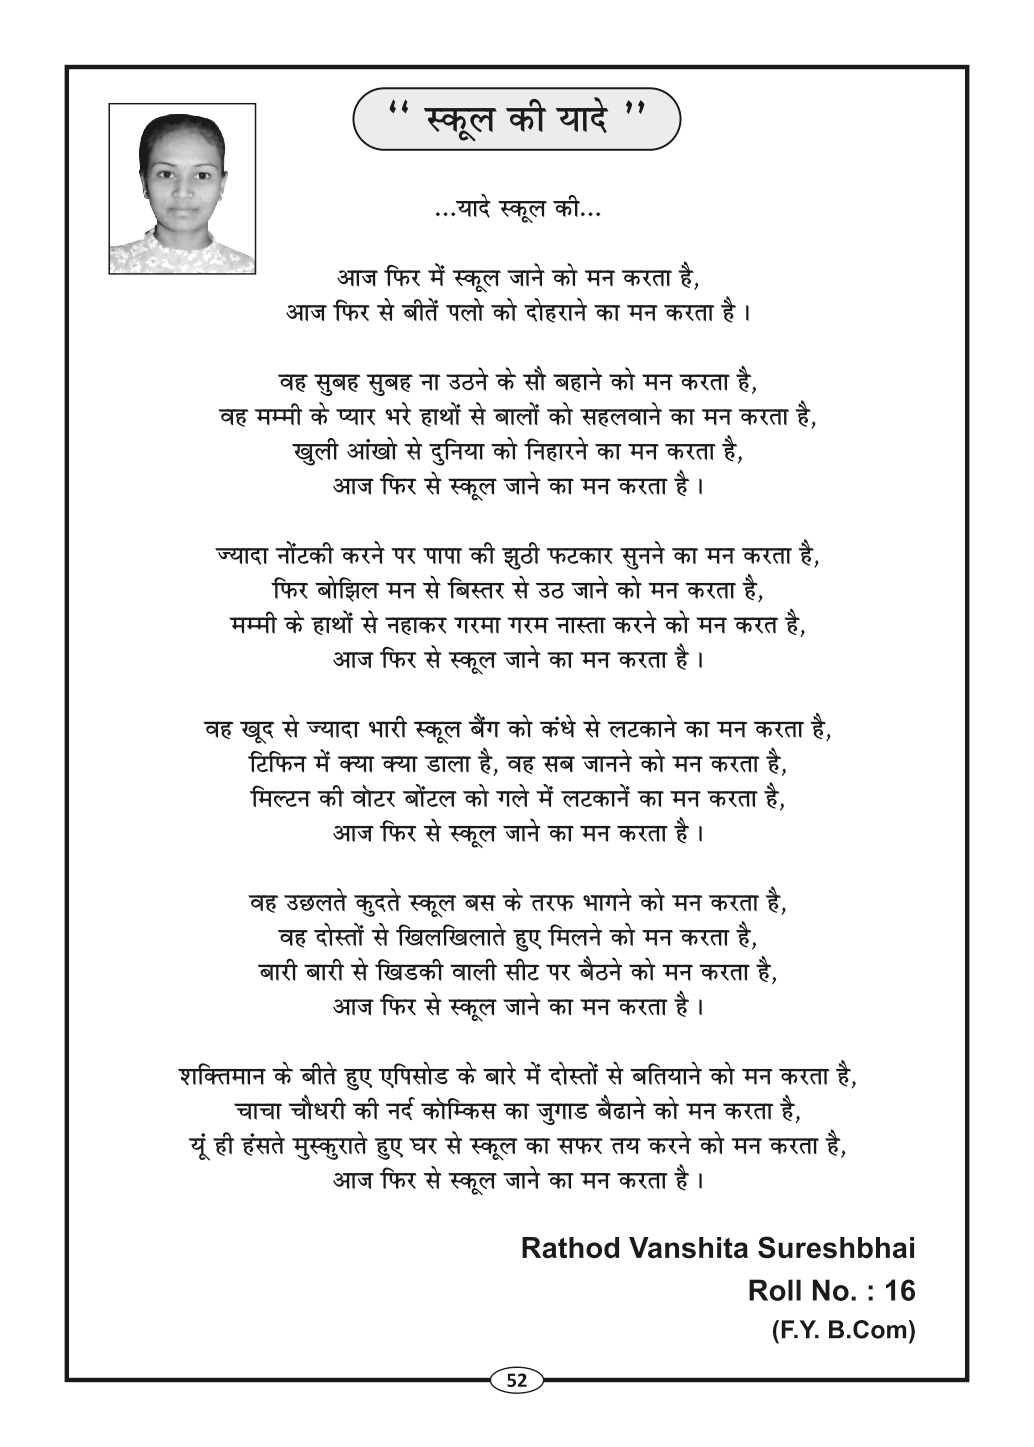 “ स्कूल की यादे ”
...यादे स्कूल की...
आज फिर में स्कूल जाने को मन करता है,
आज फिर से बीतें पलो को दोहराने का मन करता है ।
वह सुबह सुबह ना उठने के सौ बहाने को मन करता है,
वह मम्मी के प्यार भरे हाथों से बालों को सहलवाने का मन करता है,
खुली आंखो से दुनिया को निहारने का मन करता है,
आज फिर से स्कूल जाने का मन करता है ।
ज्यादा नोंटकी करने पर पापा की झुठी फटकार सुनने का मन करता है,
फिर बोझिल मन से बिस्तर से उठ जाने को मन करता है,
मम्मी के हाथों से नहाकर गरमा गरम नास्ता करने को मन करत है,
आज फिर से स्कूल जाने का मन करता है ।
वह खूद से ज्यादा भारी स्कूल बैंग को कंधे से लटकाने का मन करता है,
टिफिन में क्या क्या डाला है, वह सब जानने को मन करता है,
मिल्टन की वॉटर बोंटल को गले में लटकानें का मन करता है,
आज फिर से स्कूल जाने का मन करता है ।
वह उछलते कुदते स्कूल बस के तरफ भागने को मन करता है,
वह दोस्तों से खिलखिलाते हुए मिलने को मन करता है,
बारी बारी से खिडकी वाली सीट पर बैठने को मन करता है,
आज फिर से स्कूल जाने का मन करता है ।
शक्तिमान के बीते हुए एपिसोड के बारे में दोस्तों से बतियाने को मन करता है,
चाचा चौधरी की नर्द कॉम्किस का जुगाड बैढाने को मन करता है,
यूं ही हंसते मुस्कुराते हुए घर से स्कूल का सफर तय करने को मन करता है,
आज फिर से स्कूल जाने का मन करता है ।
Rathod Vanshita Sureshbhai
Roll No. : 16
(F.Y. B.Com)
52